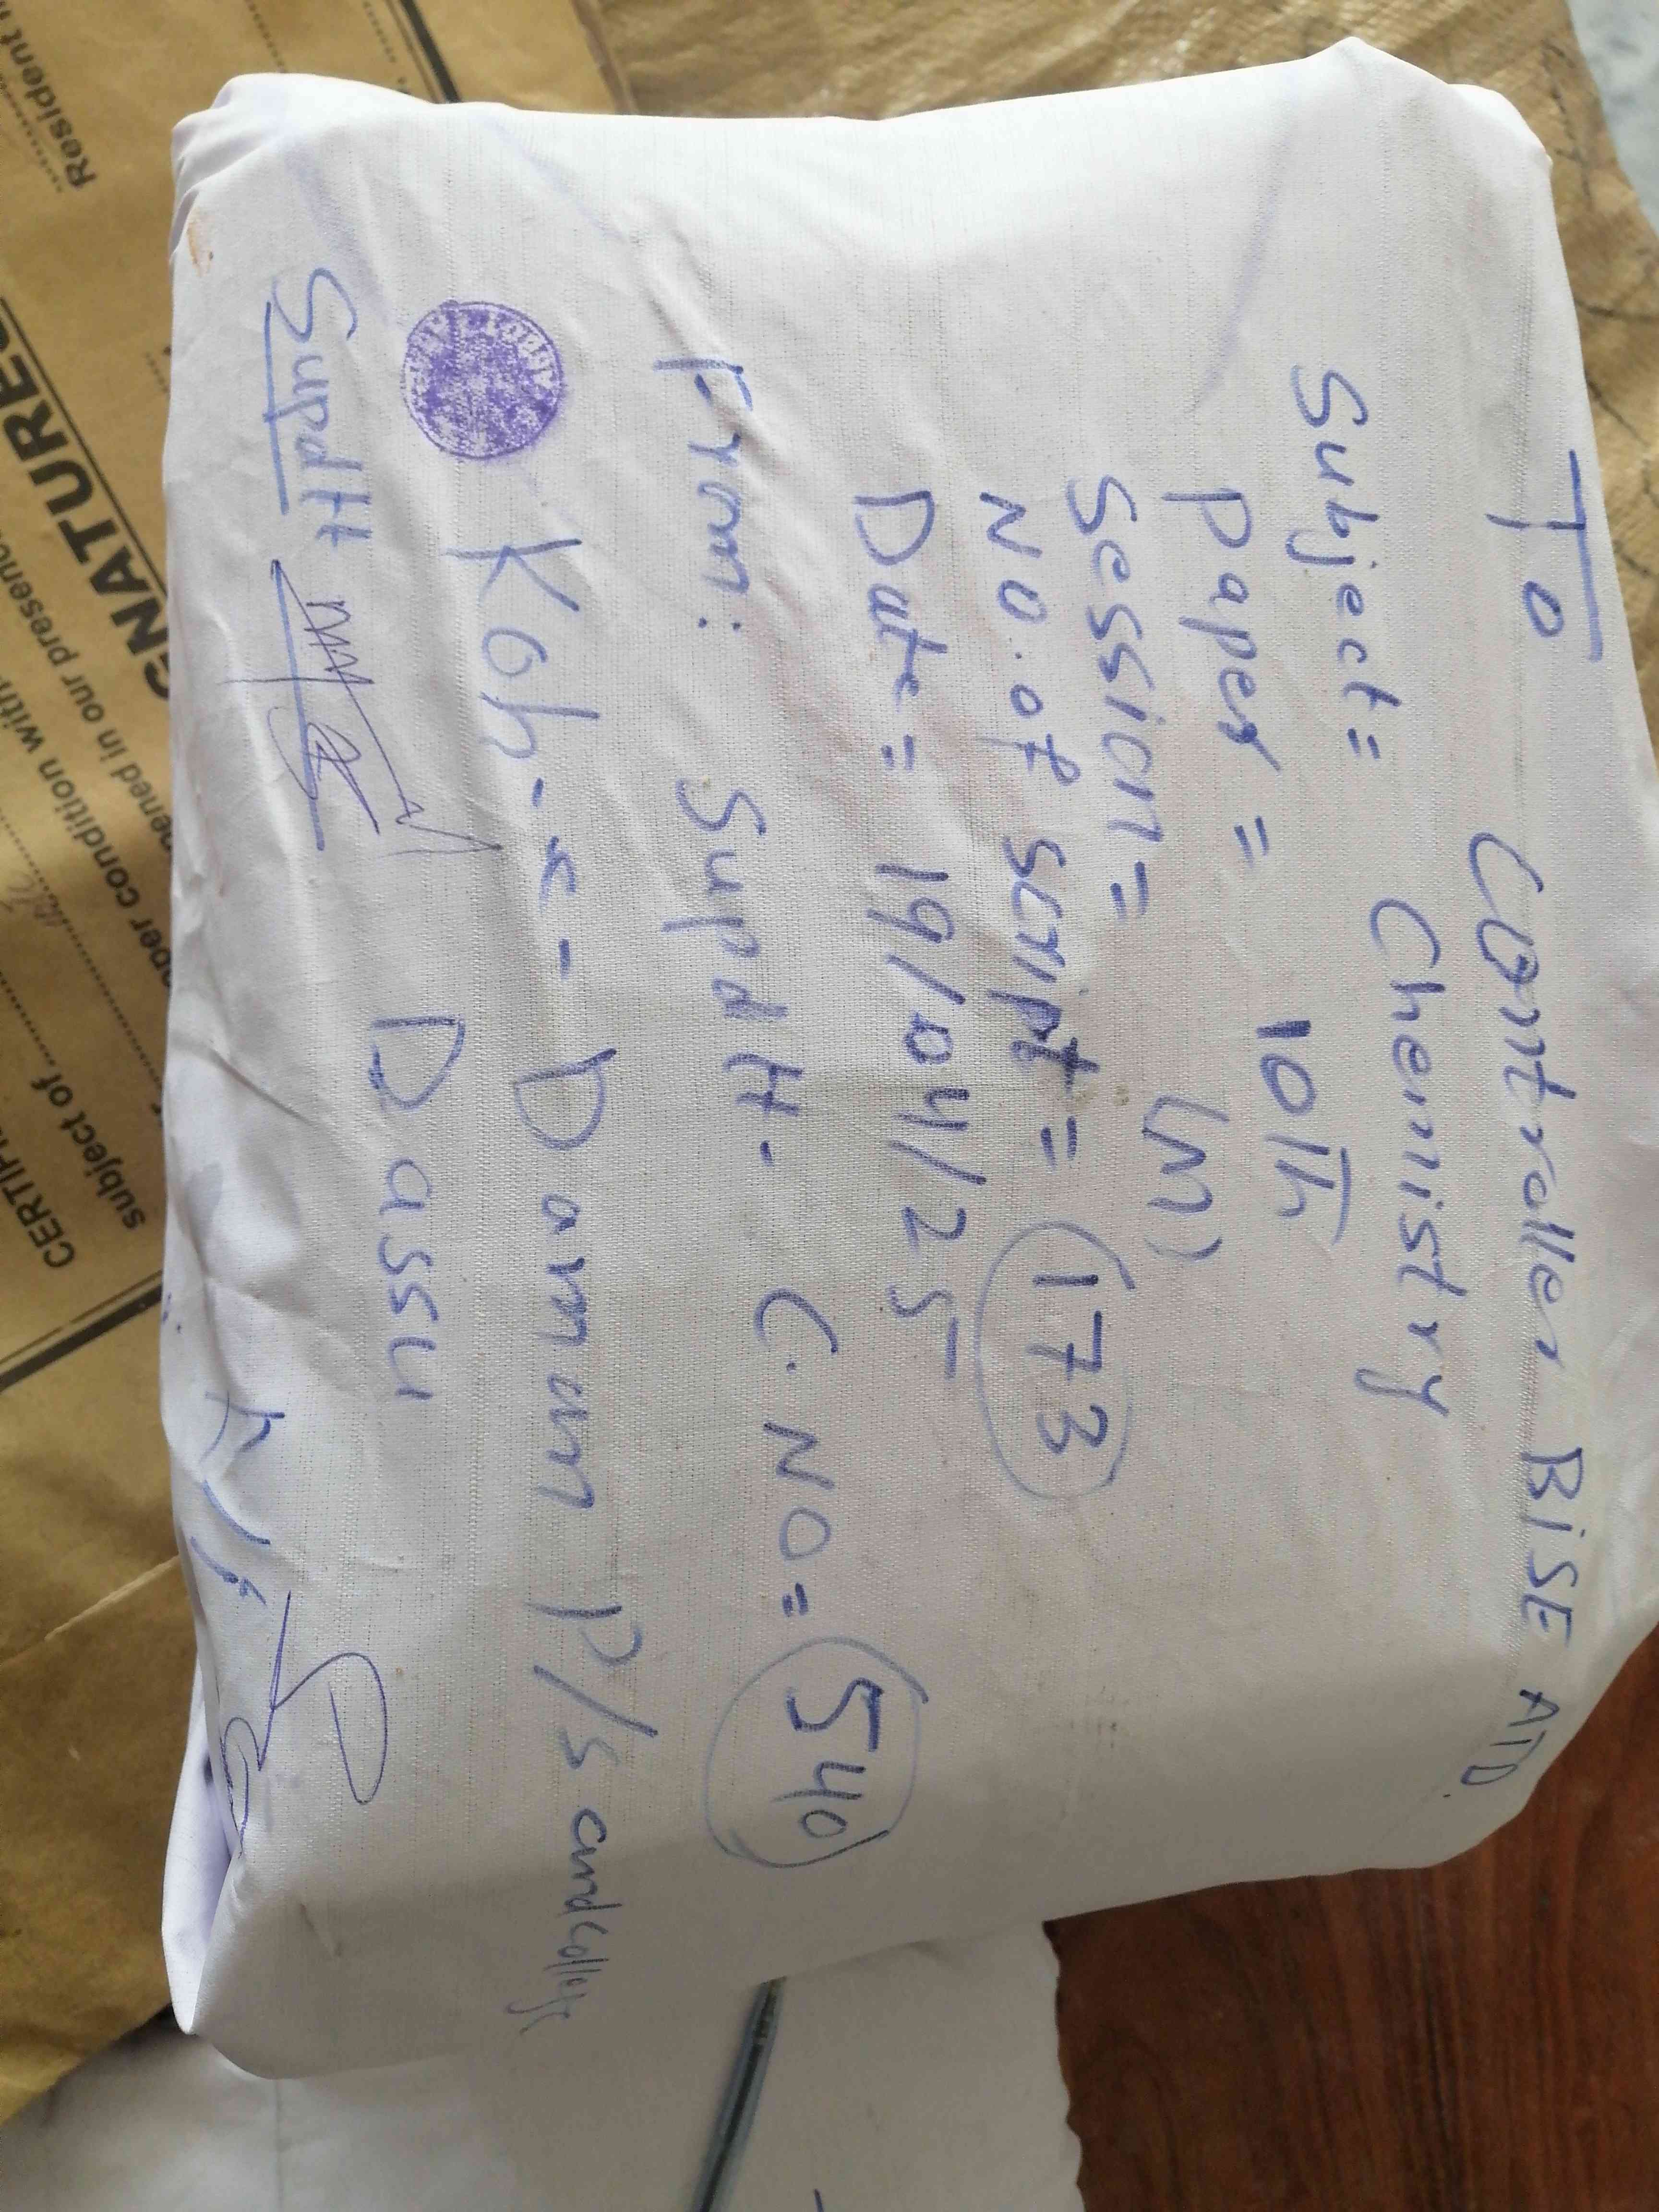 To
Controller BISE ATD.
Subject = Chemistry
Paper = 10th
Session = (M)
No. of script = 173
Date = 19/04/25
From: Supdtt - C.NO = 540
Koh-e-Damam P/S and College
Dassu
Supdtt
Resident
SIGNATURE
opened in our presence
condition with
subject of